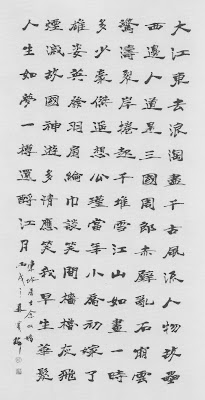 大江東去浪淘盡千古風流人物故壘
西邊人道是三國周郎赤壁亂石崩雲
驚濤裂岸捲起千堆雪江山如畫一時
多少豪傑遙想公瑾當年小喬初嫁了
雄姿英發羽扇綸巾談笑間檣櫓灰飛
煙滅故國神遊多情應笑我早生華髮
人生如夢一樽還酹江月
東坡居士念奴嬌